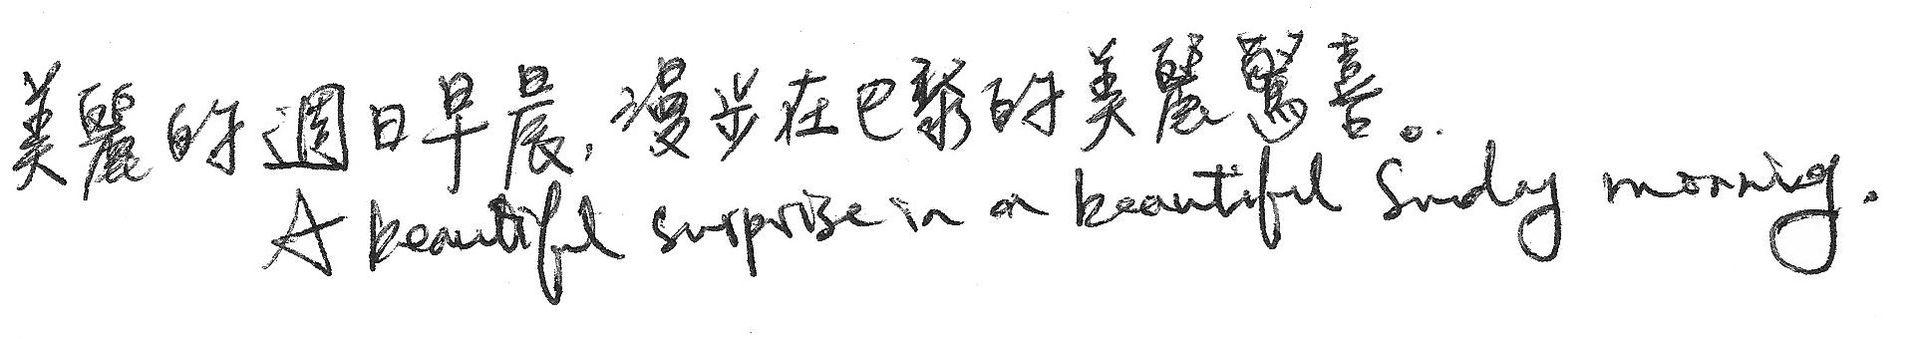 美麗的週日早晨，漫步在巴黎的美麗驚喜。
A beautiful surprise in a beautiful Sunday morning.